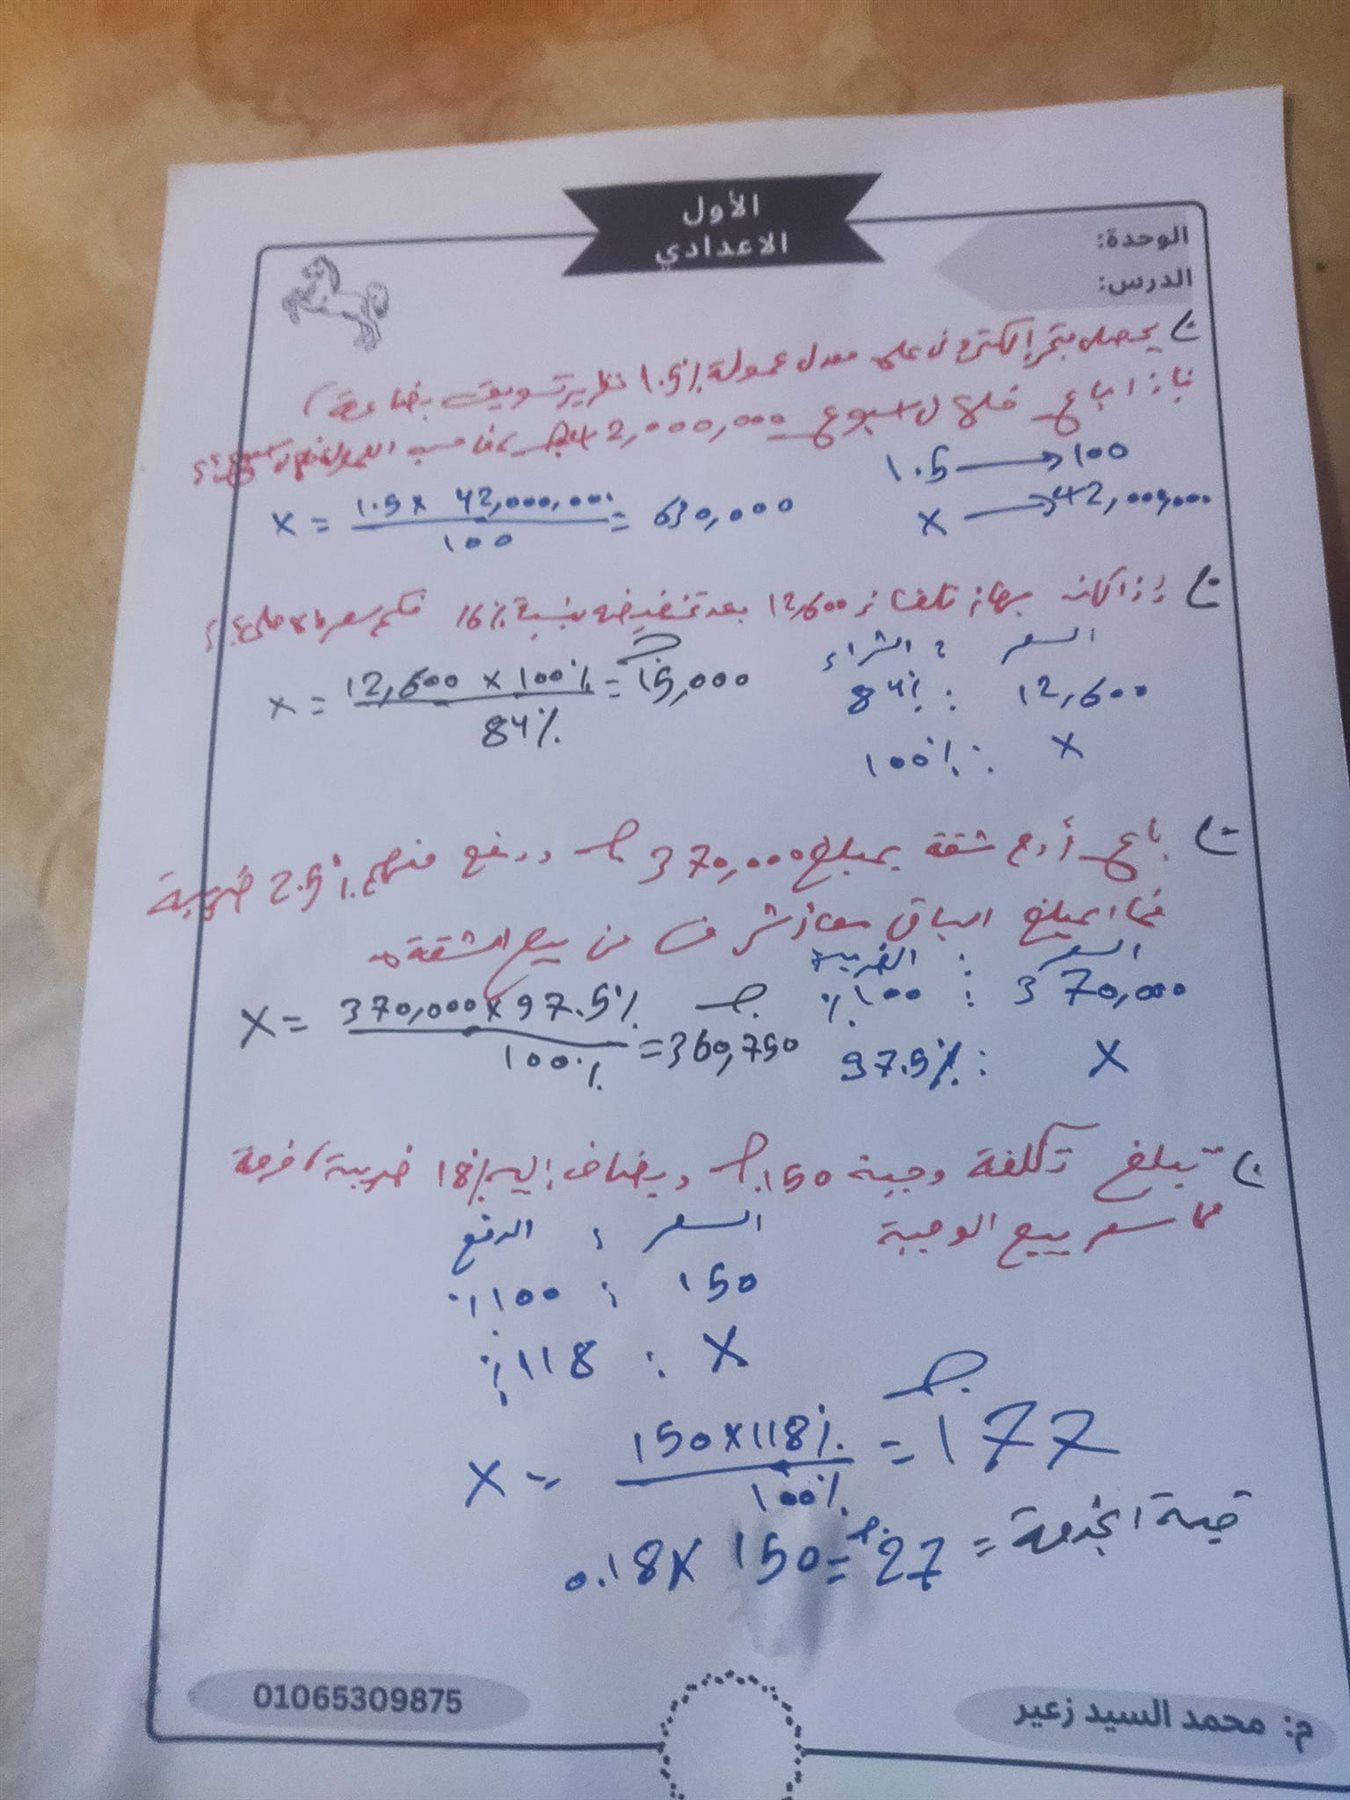 الأول
الاعدادي
الوحدة:
الدرس:
يحصل متجر إلكتروني على معدل عمولة 1.5٪ نظير تسويقه بضاعة
فإذا باع خلال اسبوع 42,000,000 جـ
1.5 → 100
x → 42,000,000
x = 1.5 x 42,000,000 / 100 = 630,000
إذا كان جهاز تلفاز 12,600 بعد تخفيضه بنسبة 16٪ فكم سعره الاصلى؟
السعر : الشراء
12,600 : 84٪
x : 100٪
x = 12,600 x 100٪ / 84٪ = 15,000 جـ
باع أدم شقة بمبلغ 370,000 جـ ودفع منهم 2.5٪ ضريبة
فما المبلغ الباقى مع من بيع الشقة
السعر : الضريبة
370,000 : 100٪
x : 97.5٪
x = 370,000 x 97.5٪ / 100٪ = 360,750 جـ
تبلغ تكلفة وجبة 150 جـ ويضاف إليه 18٪ ضريبة خدمة
فما سعر بيع الوجبة
السعر : الدفع
150 : 100٪
x : 118٪
x = 150 x 118٪ / 100٪ = 177 جـ
قيمة الخدمة = 0.18 x 150 = 27 جـ
01065309875
م: محمد السيد زعير